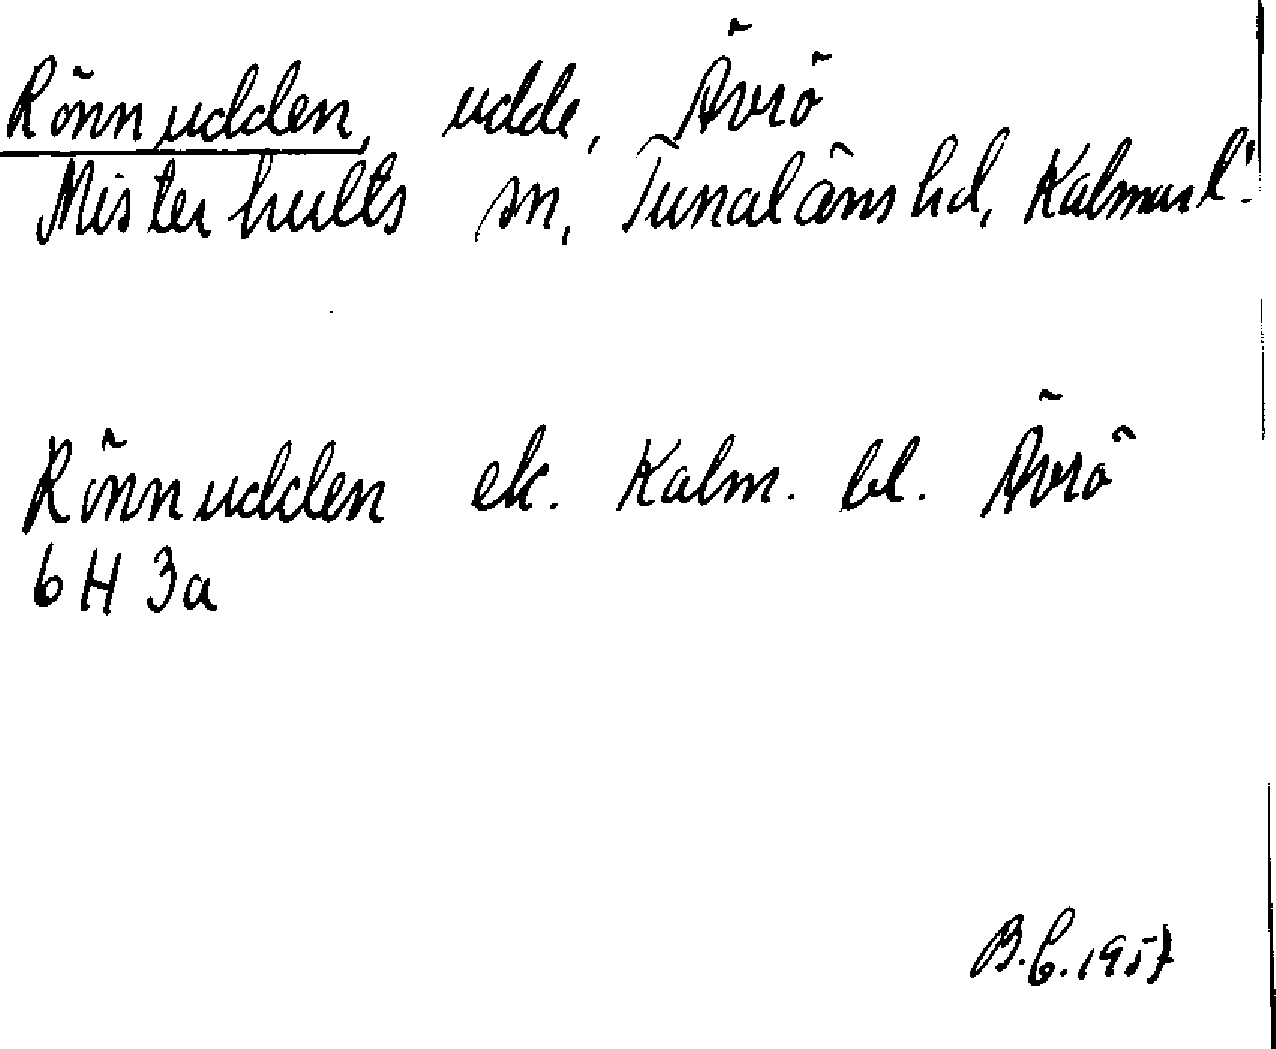 Rönnudden, udde, Ävrö
Misterhults sn, Tunaläns hd, Kalmar l.
Rönnudden ek. Kalm. bl. Ävrö
6 H 3a
B.C. 1957